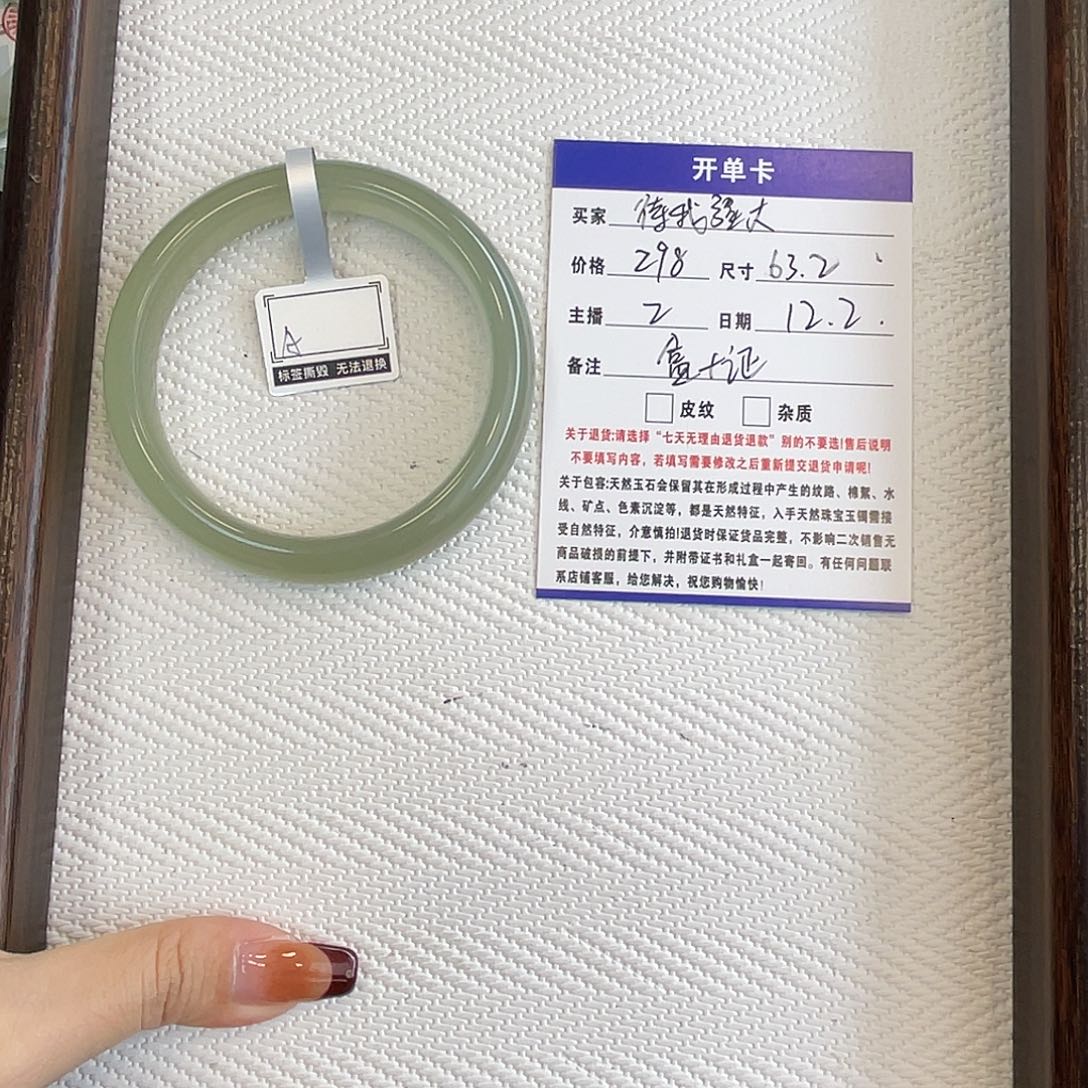 A
标签撕毁 无法退换
开单卡
买家 待我强大
价格 298 尺寸 63.2
主播 2 日期 12.2.
备注 盒+证
皮纹 杂质
关于退货:请选择“七天无理由退货退款”别的不要选!售后说明
不要填写内容，若填写需要修改之后重新提交退货申请呢!
关于包容:天然玉石会保留其在形成过程中产生的纹路、棉絮、水
线、矿点、色素沉淀等，都是天然特征，入手天然珠宝玉镯需接
受自然特征，介意慎拍!退货时保证货品完整，不影响二次销售无
商品破损的前提下，并附带证书和礼盒一起寄回。有任何问题联
系店铺客服，给您解决，祝您购物愉快!